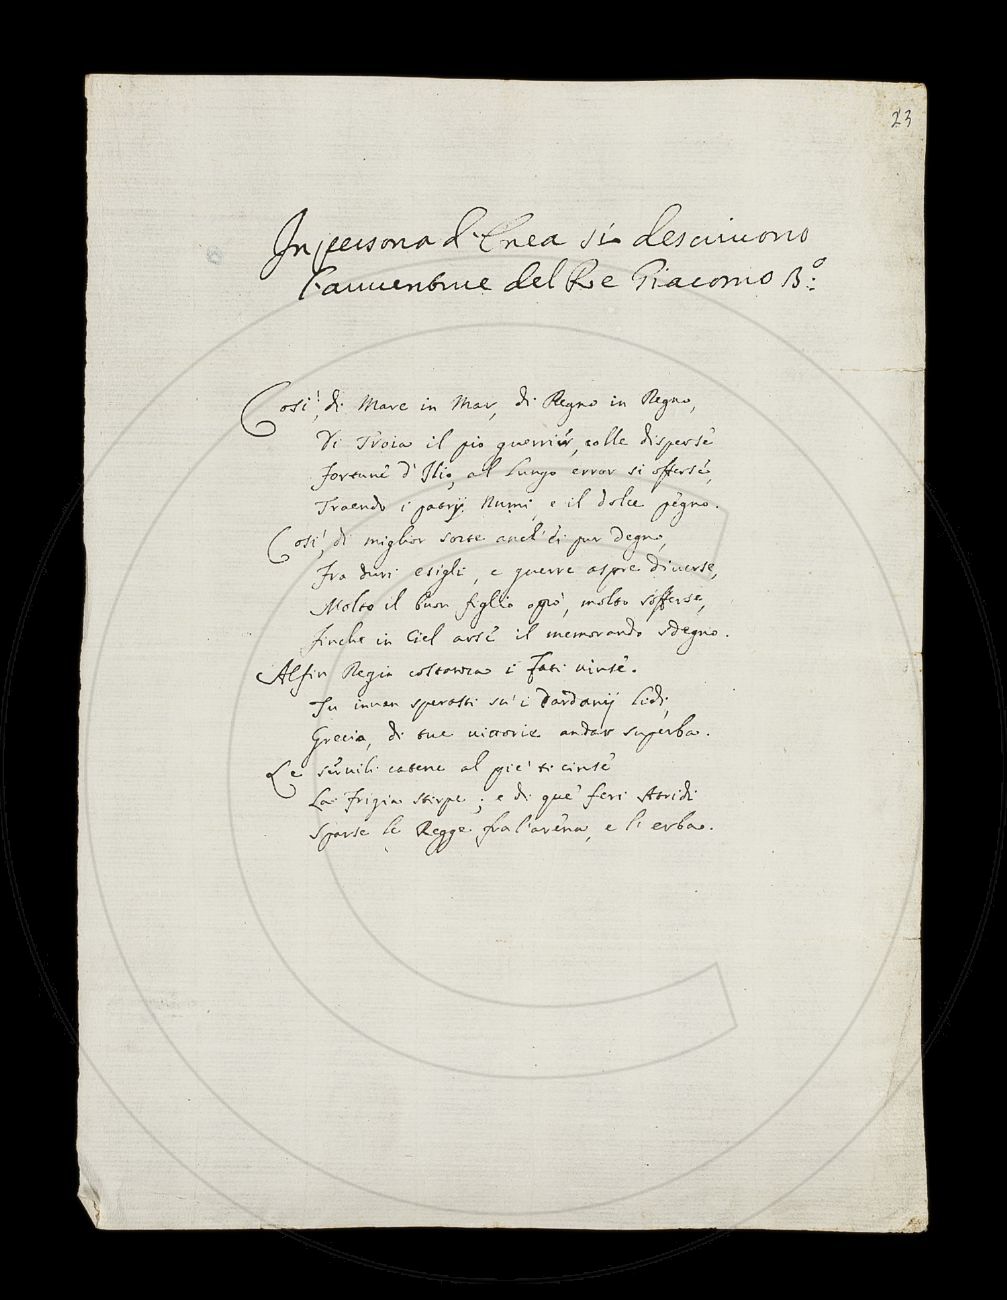 23
In persona d'Enea si descriuono
l'auuenture del Re Giacomo 3.º:
Cosi', di Mare in Mar, di Regno in Regno,
Di Troia il pio guerrier, colle disperse
fortune d'Ilio, al lungo error si offerse,
Traendo i patrij Numi, e il dolce pegno.
Cosi', di miglior sorte anch'ei pur degno,
Fra duri esigli, e guerre aspre diuerse,
Molto il buon figlio oprò, molto sofferse,
finche in Ciel arse il memorando sdegno.
Alfin Regia costanza i Fati uinse.
Tu inuan sperasti su' i Dardanij Lidi,
Grecia, di tue uittorie andar superba.
Le seruili catene al piè ti cinse
La Frigia stirpe; e di que' feri Atridi
Sparse le Regge fra l'arena, e l'erba.